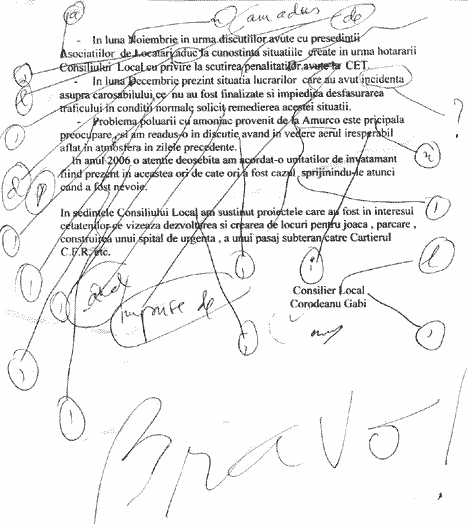 a n am adus de
- In luna Noiembrie in urma discutiilor avute cu presedintii
Asociatiilor de Locatari aduc la cunostinta situatiile create in urma hotararii
Consiliului Local cu privire la scutirea penalitatilor avute la CET.
- In luna Decembrie prezint situatia lucrarilor care au avut incidenta
asupra carosabilului ce nu au fost finalizate si impiedica desfasurarea
traficului in conditii normale solicit remedierea acestei situatii.
- Problema poluarii cu amoniac provenit de la Amurco este pricipala
preocupare, si am readus-o in discutie avand in vedere aerul irespirabil
aflat in atmosfera in zilele precedente.
In anul 2006 o atentie deosebita am acordat-o unitatilor de invatamant
fiind prezent in aceastea ori de cate ori a fost cazul sprijinindu-le atunci
cand a fost nevoie.
In sedintele Consiliului Local am sustinut proiectele care au fost in interesul
cetatenilor ce vizeaza dezvoltarea si crearea de locuri pentru joaca , parcare ,
construirea unui spital de urgenta , a unui pasaj subteran catre Cartierul
C.F.R. etc.
Consilier Local
Corodeanu Gabi
impuse de
Bravo!